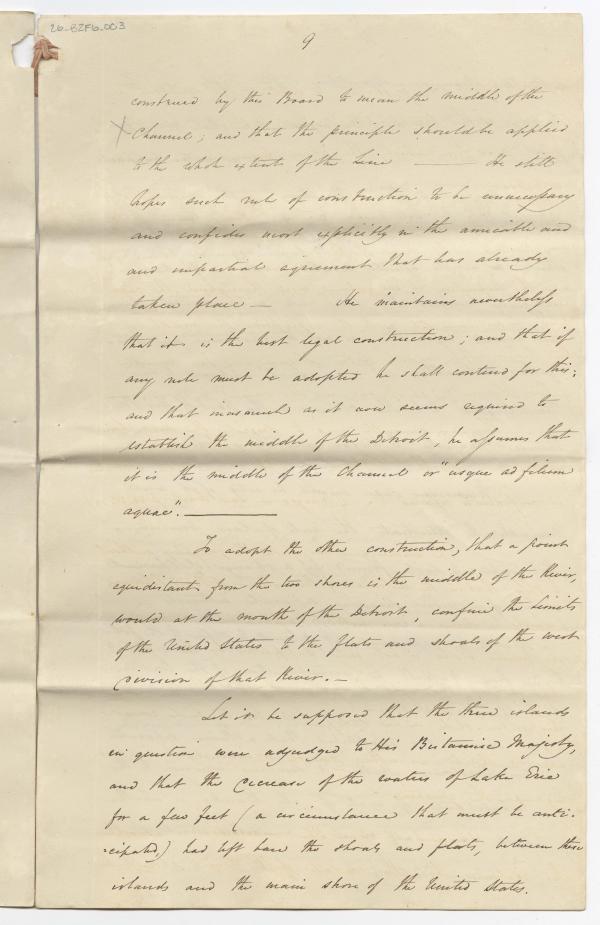 26-B2F6.003
9
construed by this Board to mean the middle of the
X Channel; and that the principle should be applied
to the whole extent of the Line —— He still
hopes such rule of construction to be unnecessary
and confides most explicitly in the amicable and
and impartial agreement that has already
taken place — He maintains nevertheless
that it is the best legal construction; and that if
any rule must be adopted he shall contend for this;
and that inasmuch as it now seems required to
establish the middle of the Detroit, he assumes that
it is the middle of the Channel or "usque ad filum
aquae". ———
To adopt the other construction, that a point
equidistant from the two shores is the middle of the River,
would at the mouth of the Detroit, confine the Limits
of the United States to the flats and shoals of the west
division of that River. —
Let it be supposed that the three islands
in question were adjudged to His Britannic Majesty,
and that the decrease of the waters of Lake Erie
for a few feet (a circumstance that must be anti-
-cipated,) had left bare the shoals and flats, between these
islands and the main shore of the United States.